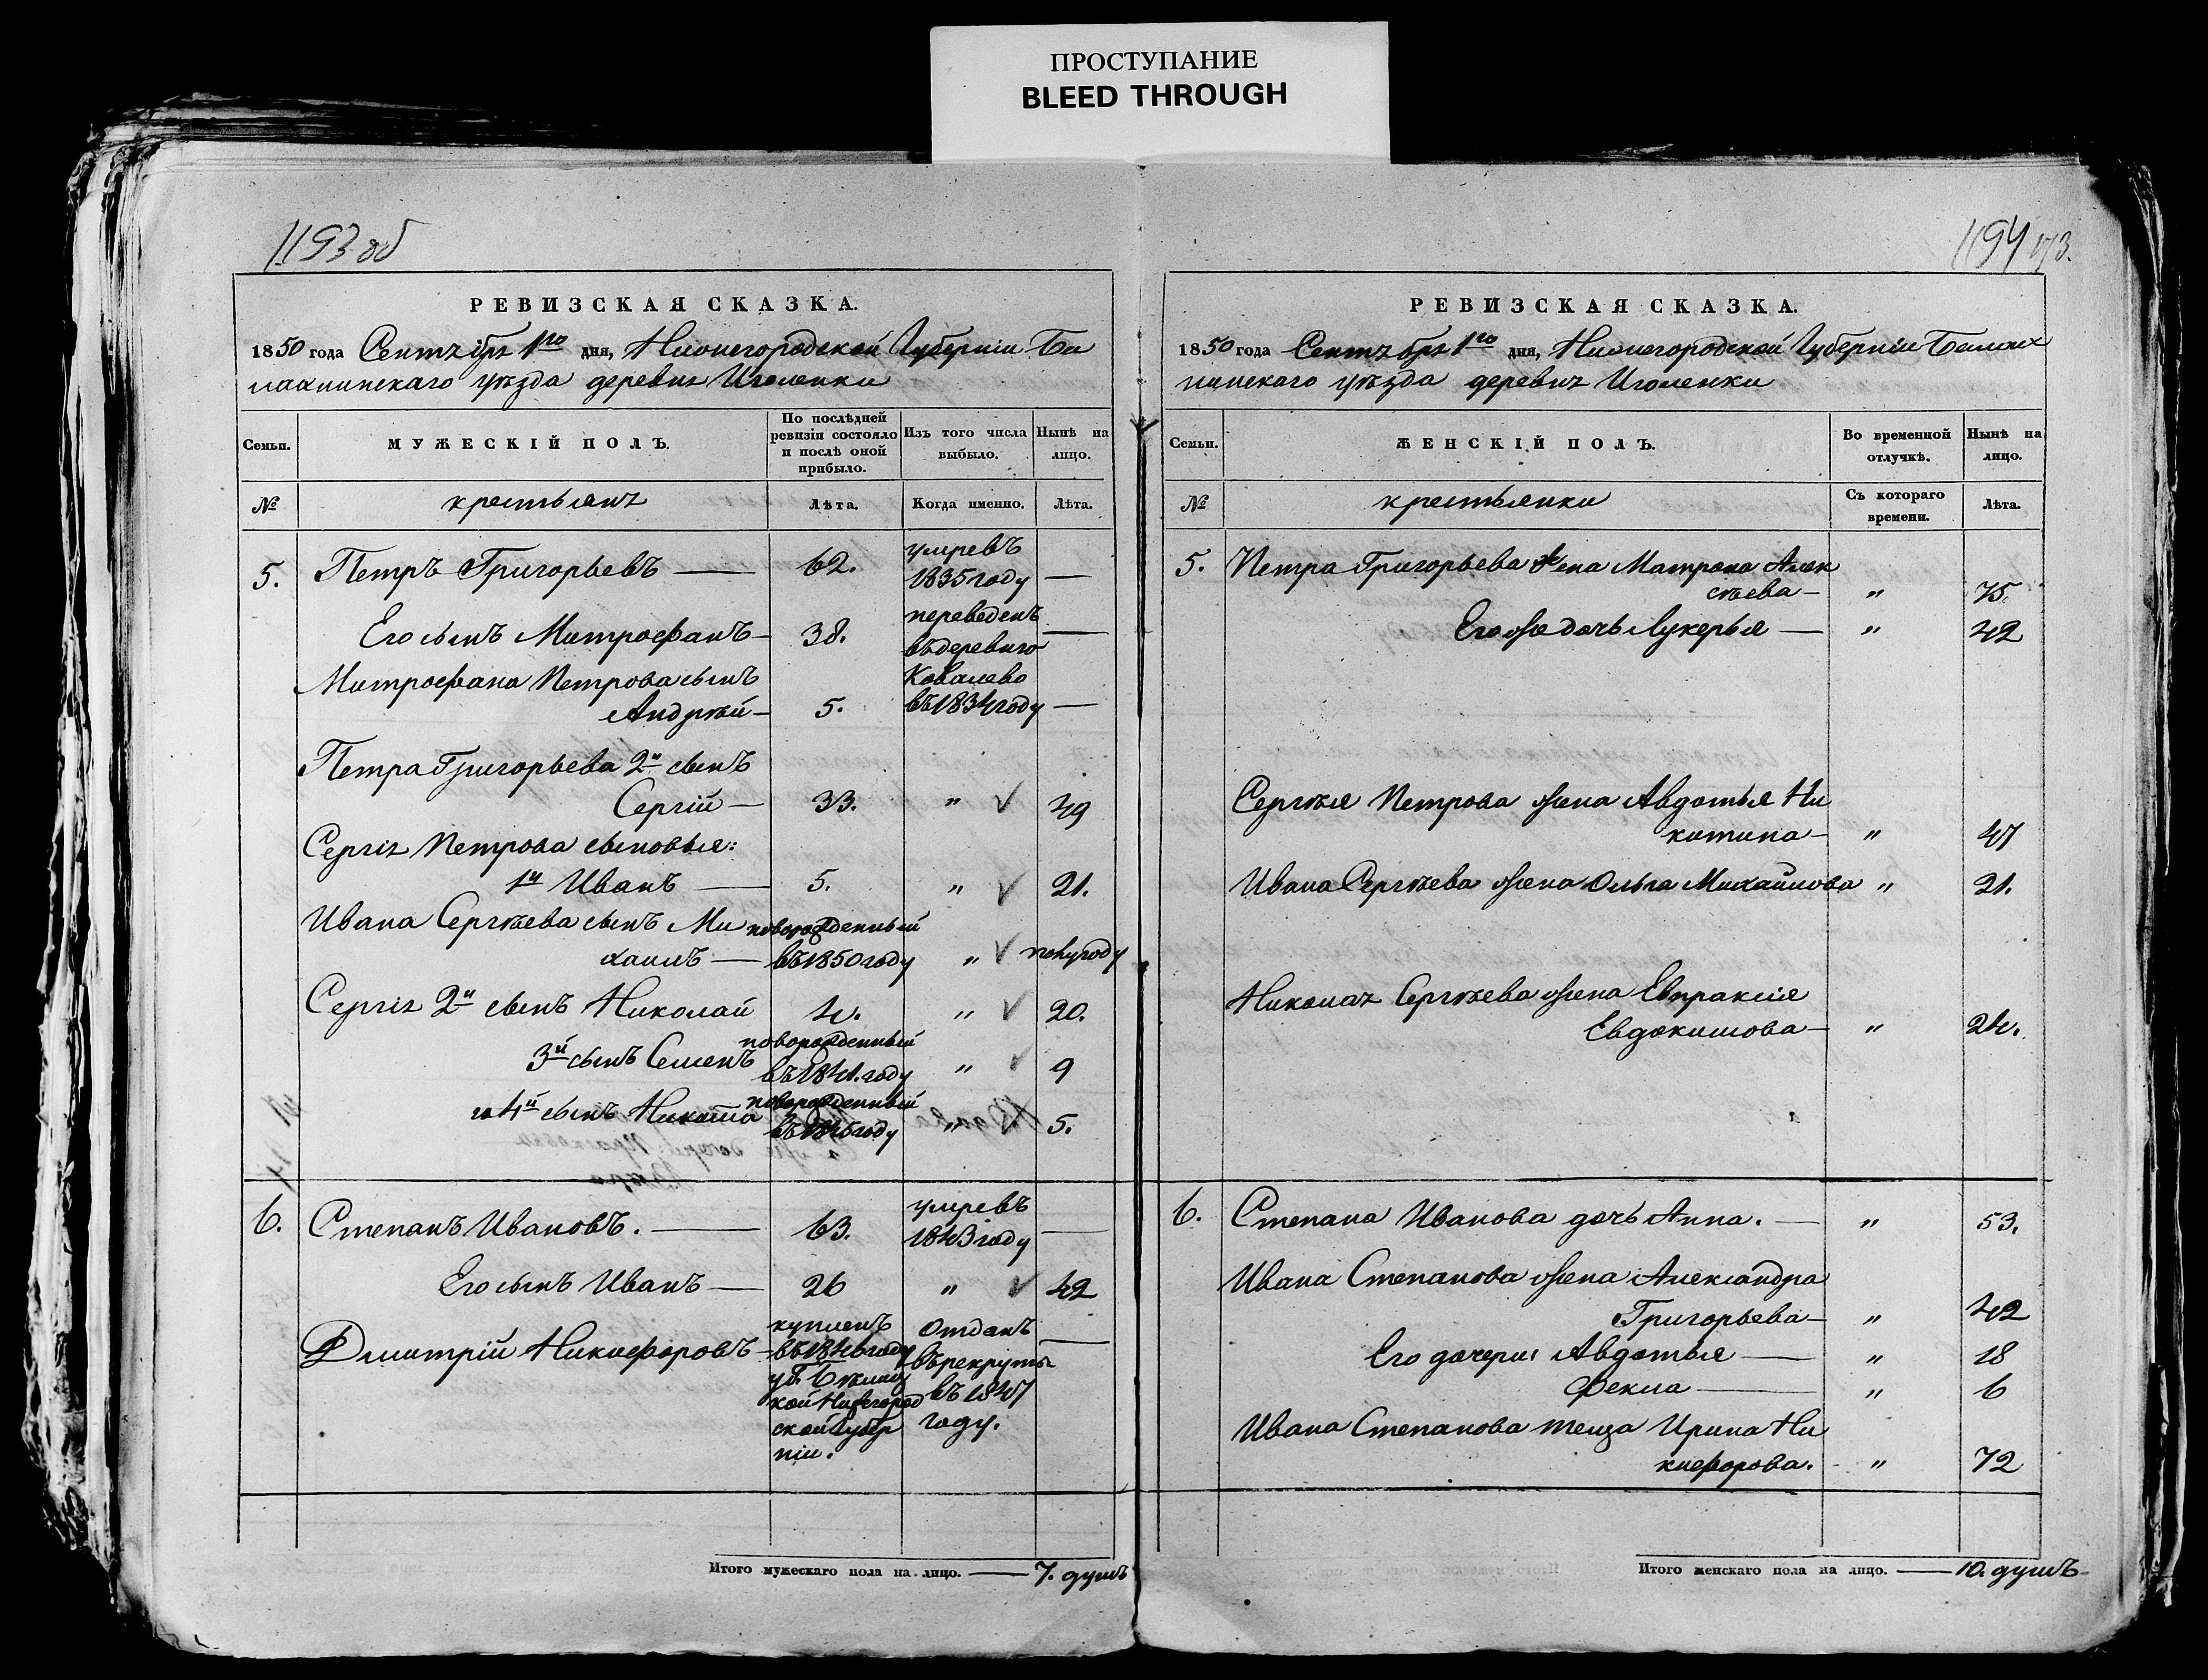 ПРОСТУПАНИЕ
BLEED THROUGH
1193 об
РЕВИЗСКАЯ СКАЗКА.
1850 года Сентября 1го дня, Нижегородской Губерніи Ба
лахнинскаго уѣзда деревни Иголенки
Семьи.
МУЖЕСКІЙ ПОЛЪ.
По послѣдней ревизіи состояло и послѣ оной прибыло.
Изъ того числа выбыло.
Нынѣ на лицо.
№
крестьянъ
Лѣта.
Когда именно.
Лѣта.
5. Петръ Григорьевъ — 62. умревъ 1835 году —
Его сынъ Митрофанъ — 38. переведенъ —
въ деревню
Митрофана Петрова сынъ Ковалево
Андрей — 5. въ 1834 году —
Петра Григорьева 2й сынъ
Сергій — 33. " 49
Сергія Петрова сыновья:
1й Иванъ — 5. " 21.
Ивана Сергѣева сынъ Ми новорожденный
хаилъ — въ 1850 году " полугоду
Сергія 2й сынъ Николай 4. " 20.
новорожденный
3й сынъ Семенъ въ 1841. году " 9
новорожденный
4й сынъ Никита въ 1845 году " 5.
6. Степанъ Ивановъ. — 63. умревъ 1843 году —
Его сынъ Иванъ — 26 " 42
Дмитрій Никифоровъ — купленъ въ 1846 году
кой Нижегород
ской Губер
ніи.
Отданъ —
въ рекруты
въ 1847
году.
Итого мужескаго пола на лицо. — 7. душъ
1194 173.
РЕВИЗСКАЯ СКАЗКА.
1850 года Сентября 1го дня, Нижегородской Губерніи Балах
нинскаго уѣзда деревни Иголенки
Семьи.
ЖЕНСКІЙ ПОЛЪ.
Во временной отлучкѣ.
Нынѣ на лицо.
№
крестьянки
Съ котораго времени.
Лѣта.
5. Петра Григорьева жена Матрона Алек
сѣева — " 75.
Его же дочь Лукерья — " 42
Сергѣя Петрова жена Авдотья Ни
китина — " 47
Ивана Сергѣева жена Ольга Михайлова " 21.
Николая Сергѣева жена Евпраксія
Евдокимова — " 24.
6. Степана Иванова дочь Анна. — " 53.
Ивана Степанова жена Александра
Григорьева — " 42
Его дочери: Авдотья — " 18
Фекла — " 6
Ивана Степанова теща Ирина Ни
кифорова. — " 72
Итого женскаго пола на лицо. — 10. душъ